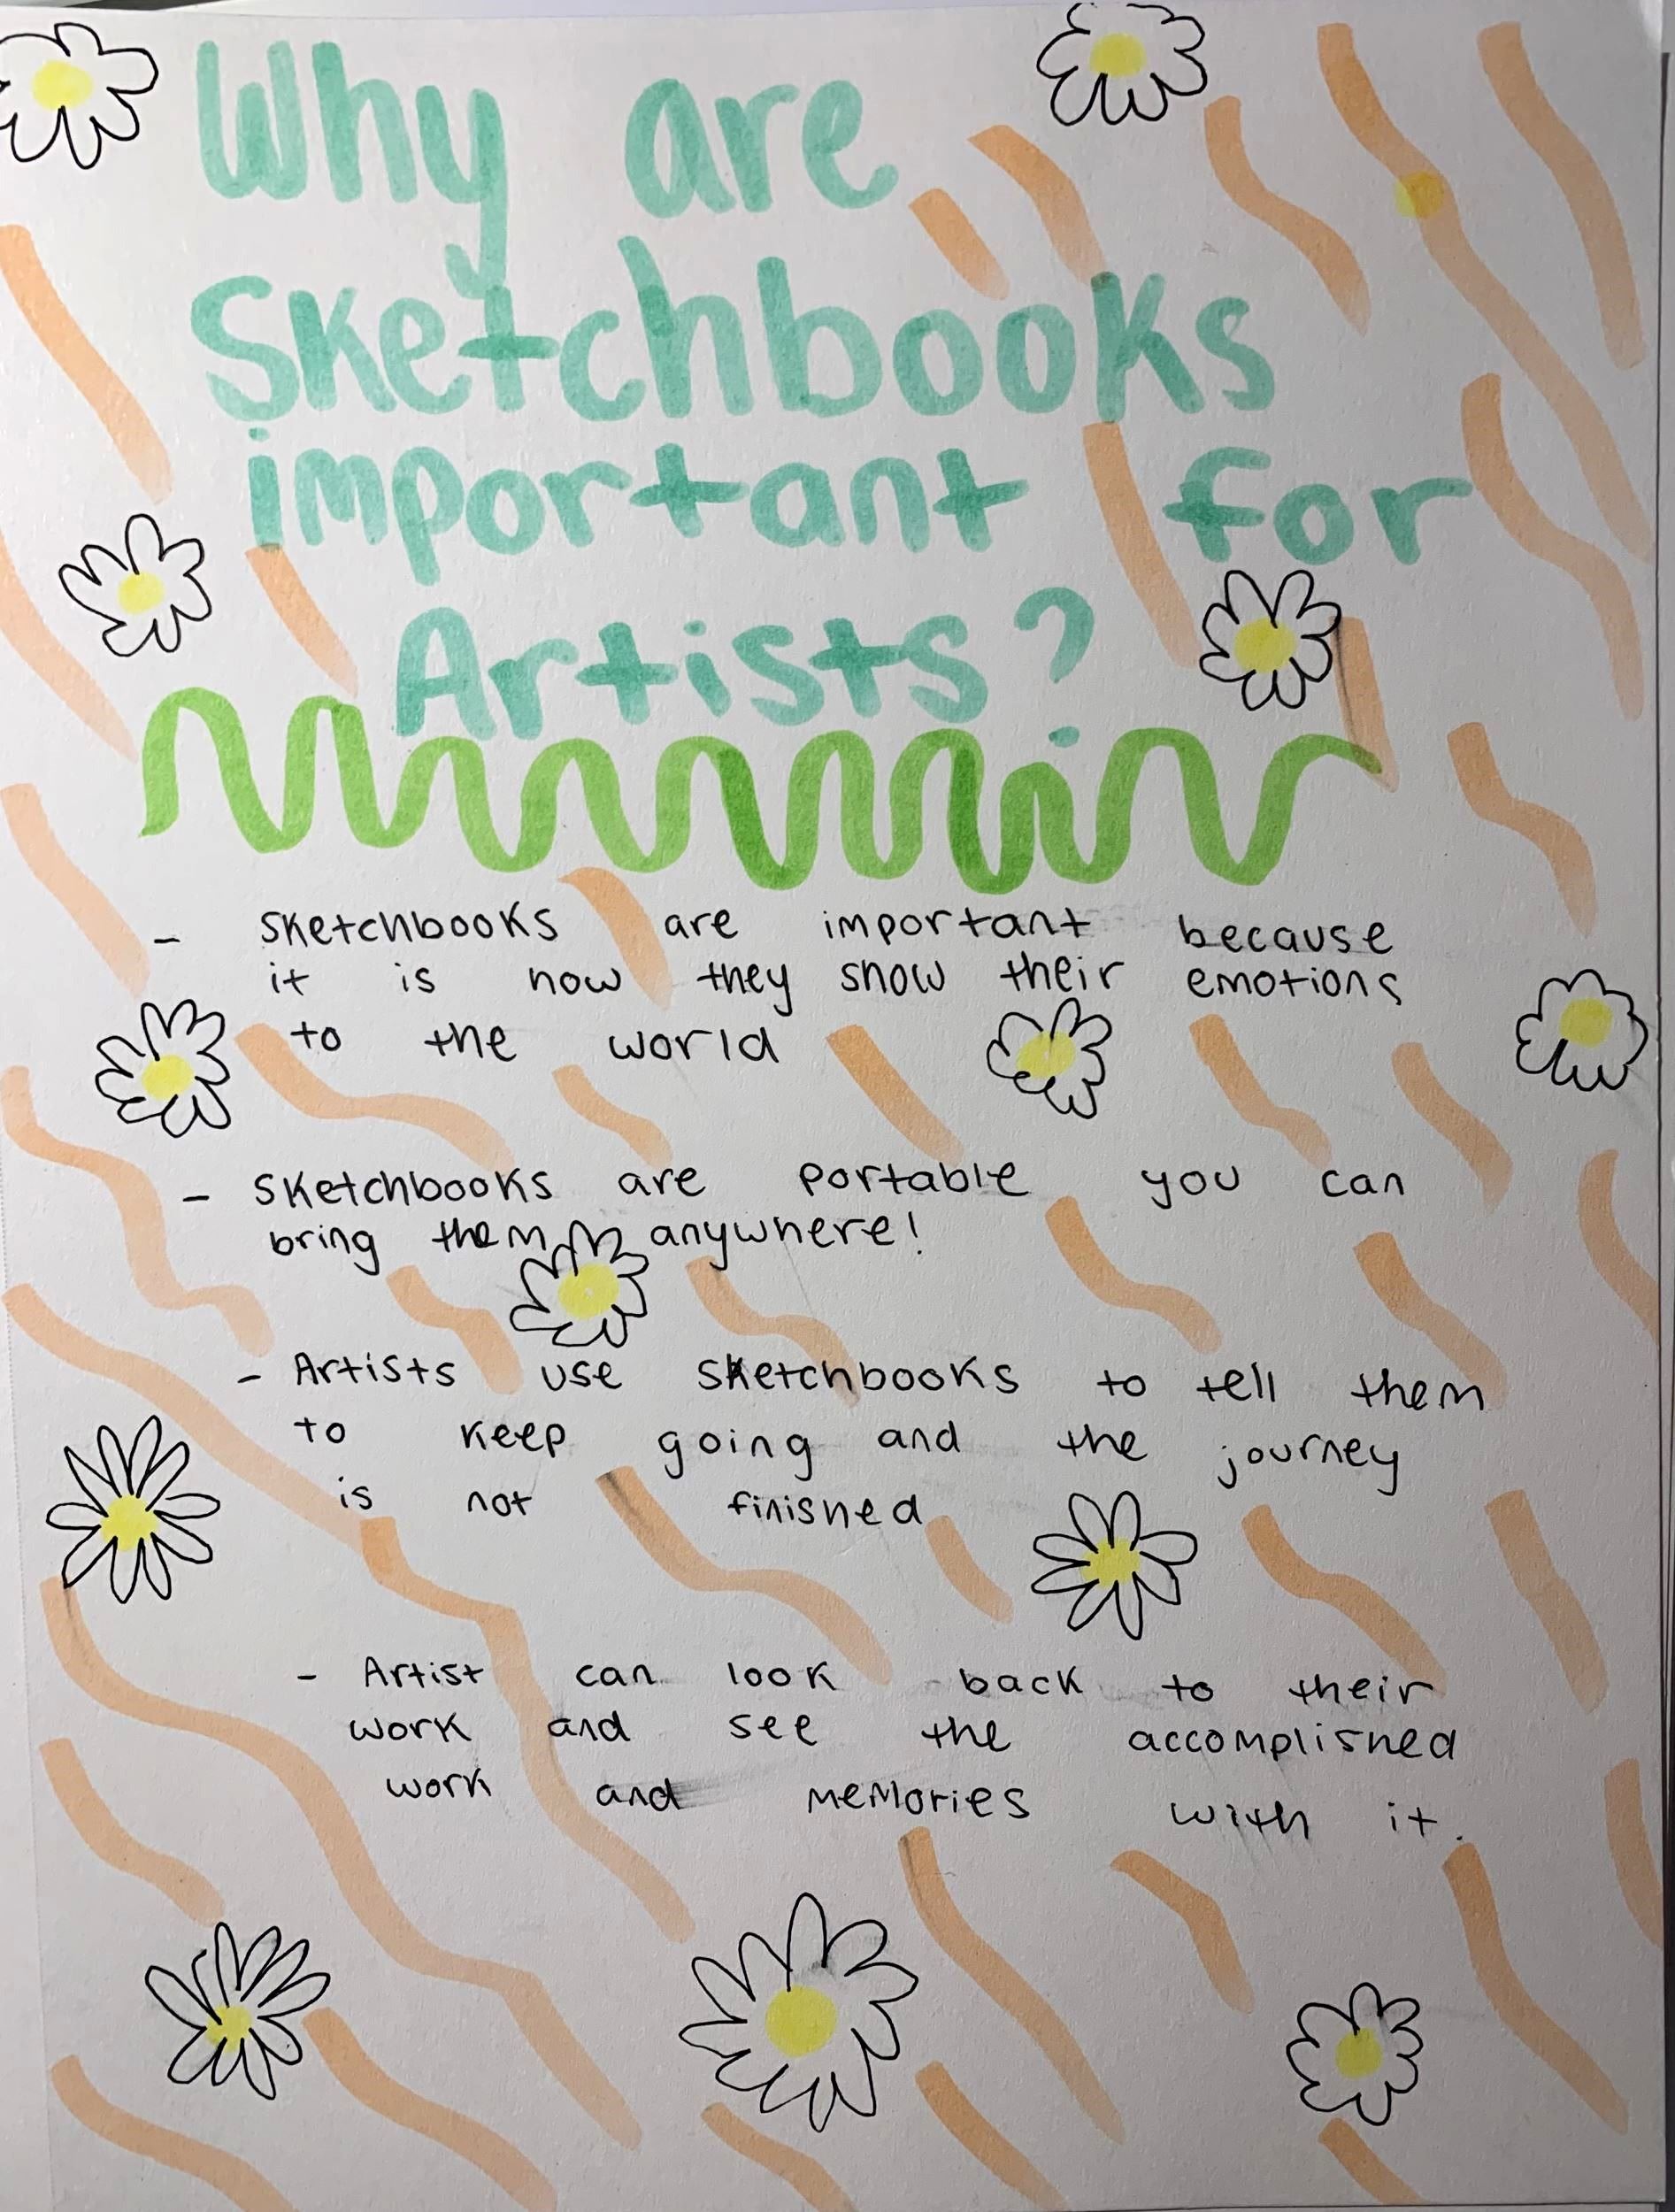 Why are
Sketchbooks
important for
Artists?
- Sketchbooks are important because
it is how they show their emotions
to the world
- Sketchbooks are portable you can
bring them anywhere!
- Artists use sketchbooks to tell them
to keep going and the journey
is not finished
- Artist can look back to their
work and see the accomplished
work and memories with it.